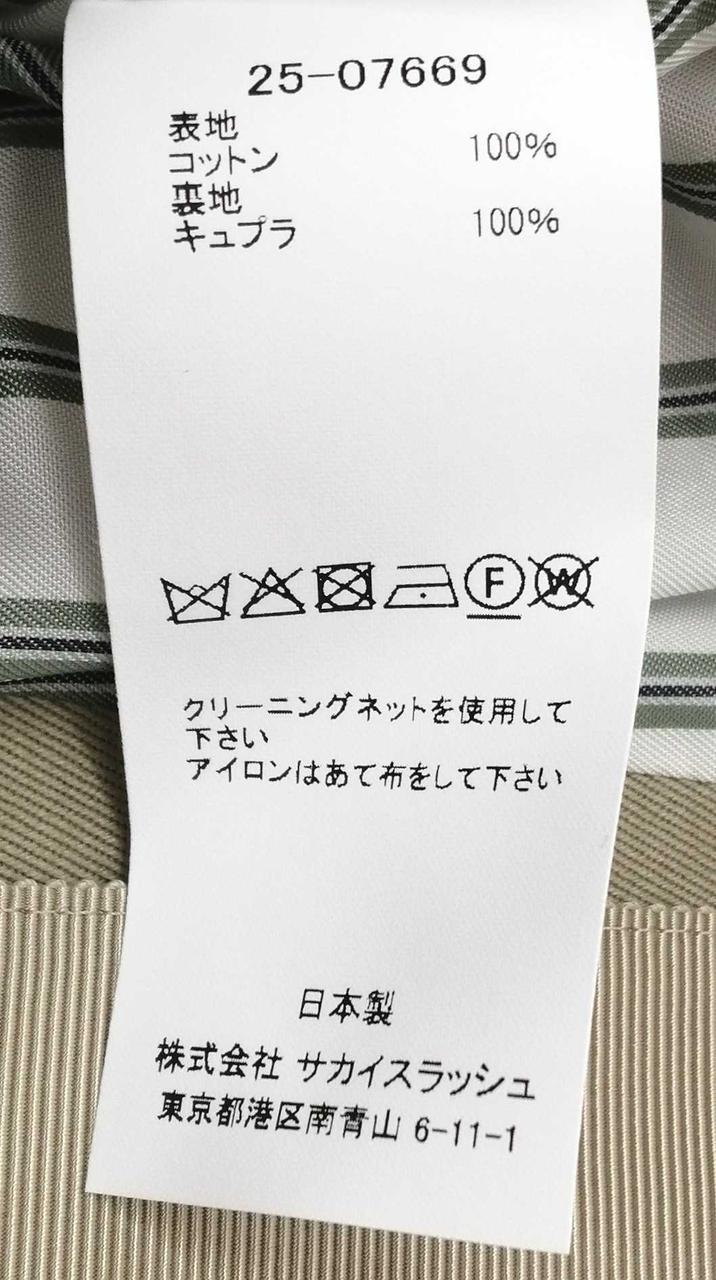 25-07669
表地
コットン 100%
裏地
キュプラ 100%
F W
クリーニングネットを使用して
下さい
アイロンはあて布をして下さい
日本製
株式会社 サカイスラッシュ
東京都港区南青山 6-11-1